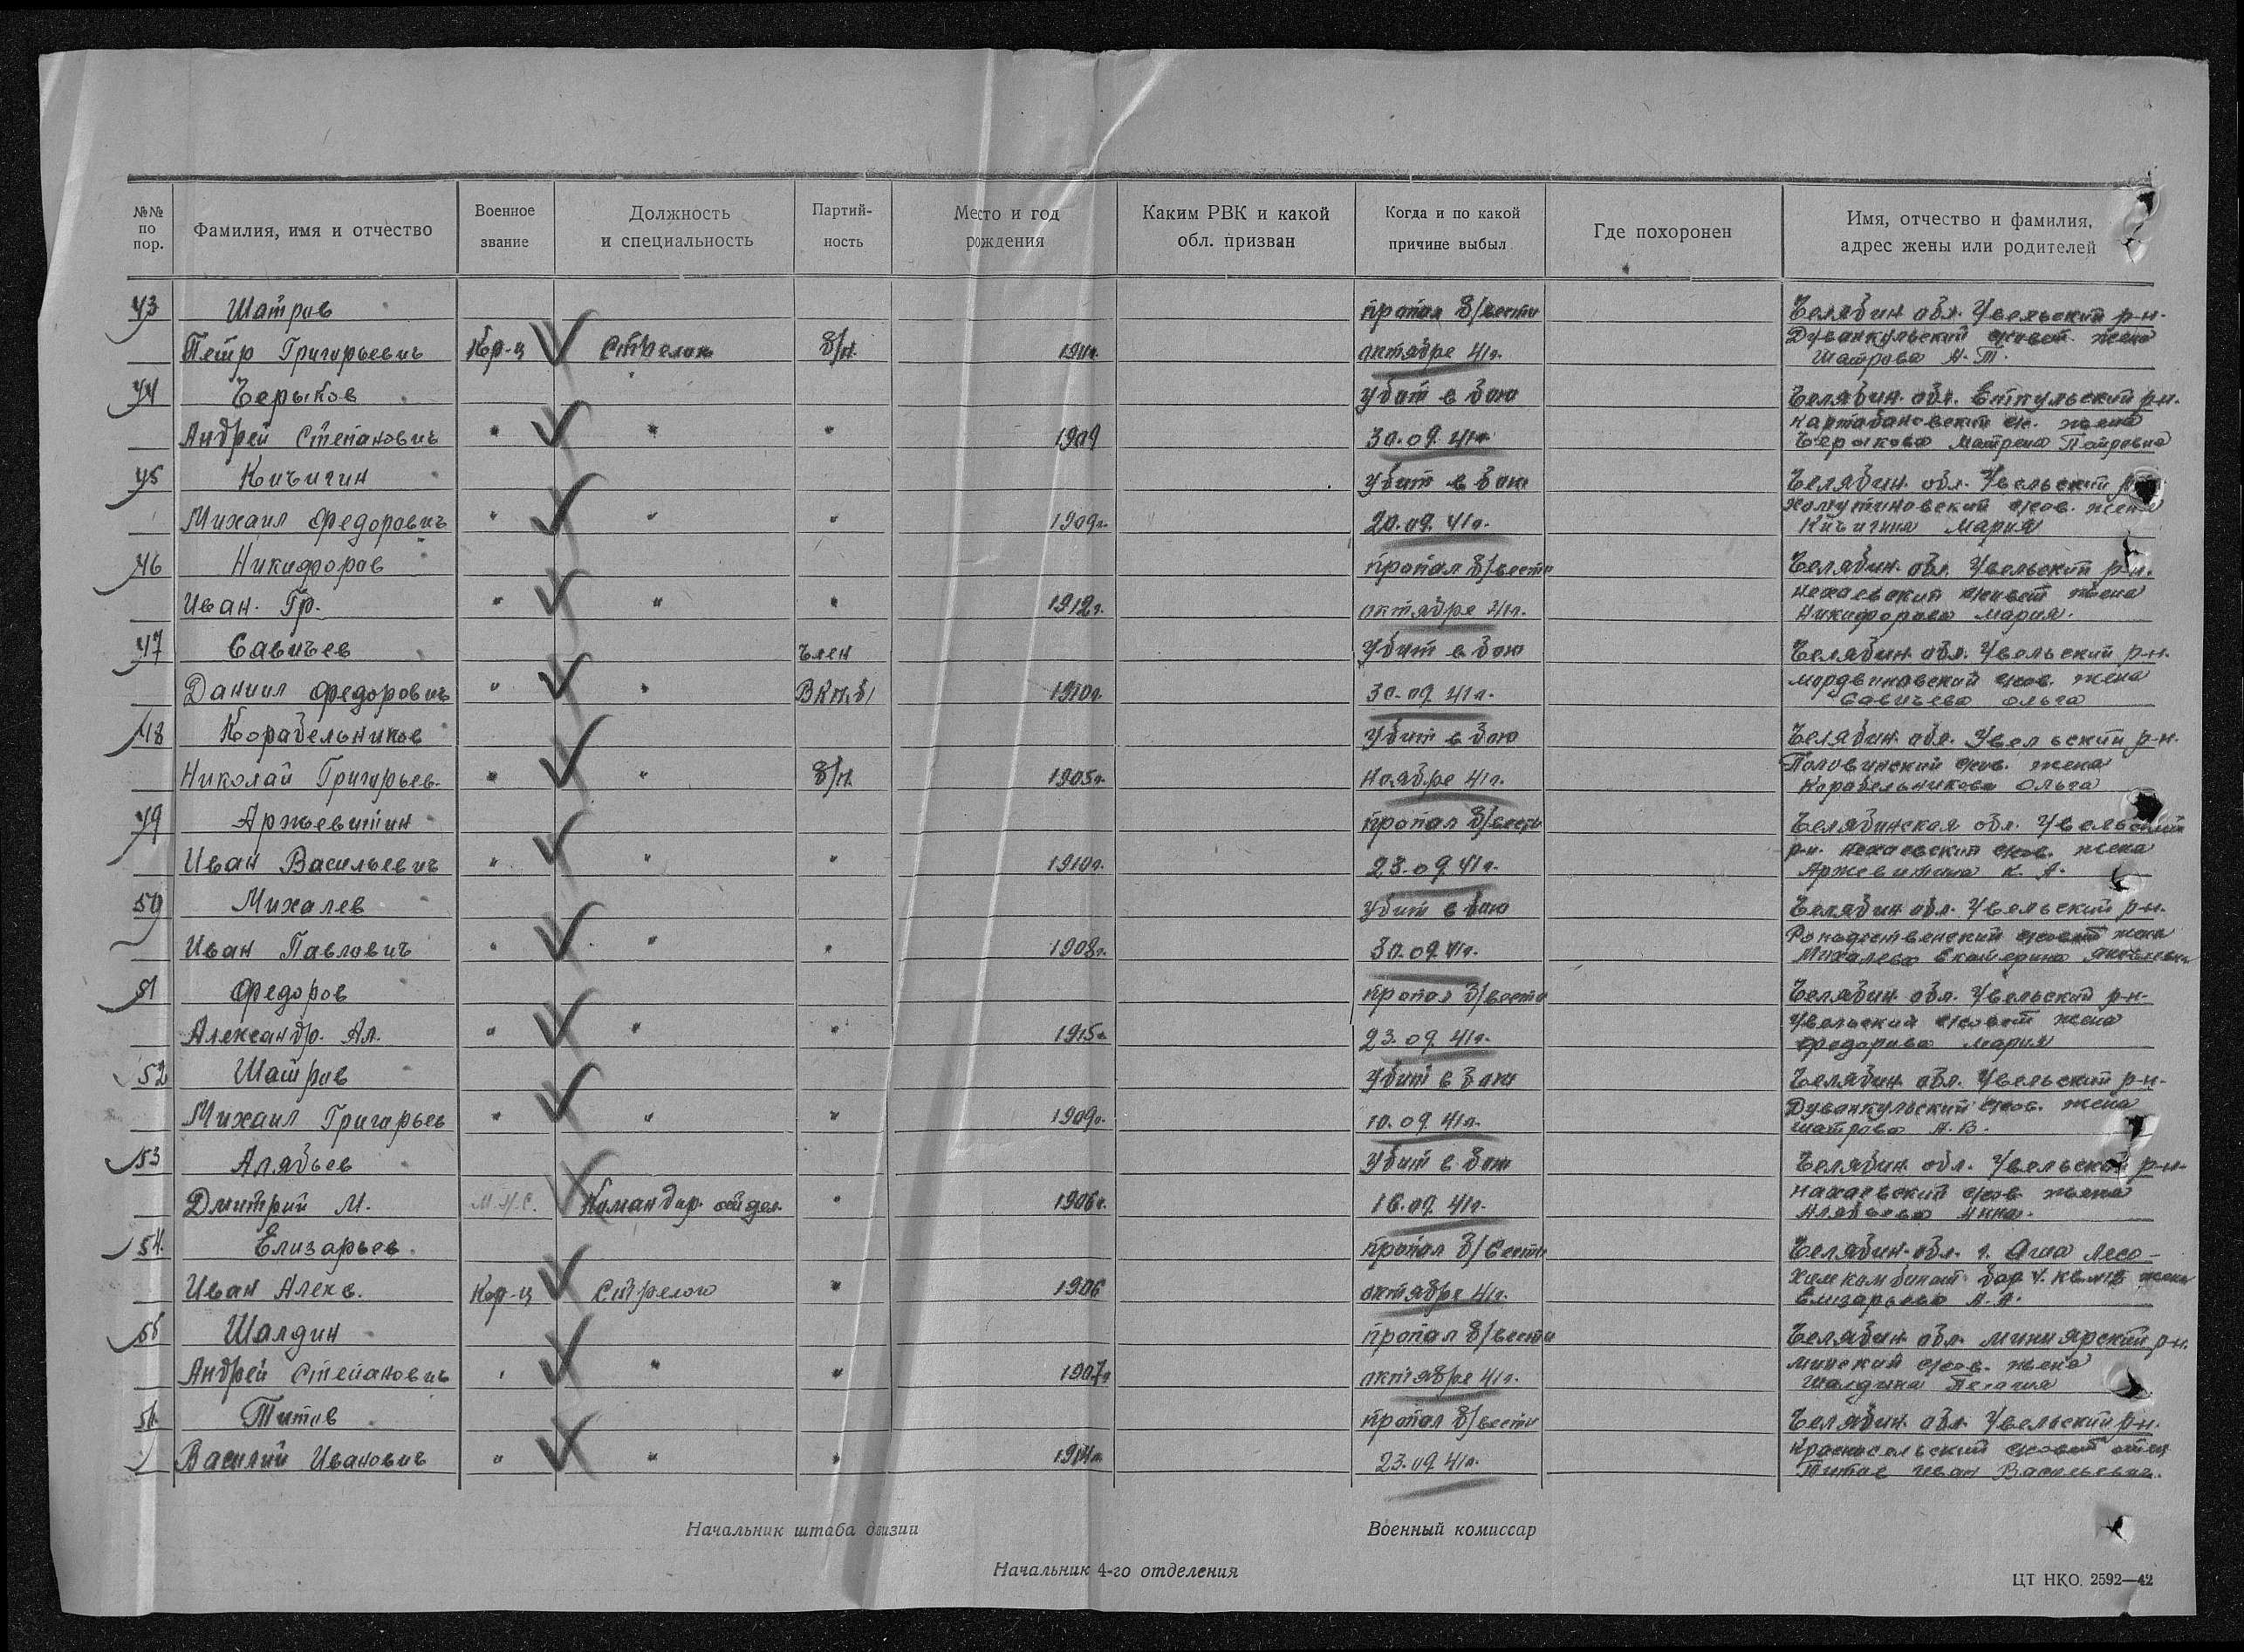 №№ по пор. Фамилия, имя и отчество Военное звание Должность и специальность Партийность Место и год рождения Каким РВК и какой обл. призван Когда и по какой причине выбыл Где похоронен Имя, отчество и фамилия, адрес жены или родителей
43 Шатров пропал б/вести Челябин. обл. Увельский р-н.
Петр Григорьевич Кр-ц Стрелок б/п. октябре 41г. Дуванкульский с/совет жена
Шатрова А. Т.
44 Черыков Убит в бою Челябин. обл. Еткульский р-н.
Андрей Степанович " " " 1909 30.09.41г. Картабановский с/с. жена
Черыкова Матрена Петровна
45 Кичигин Убит в бою Челябин. обл. Увельский
Михаил Федорович " " " 1909г. 20.09.41г. Хомутиновский с/сов. жена
Кичигина Мария
46 Никифоров пропал б/вести Челябин. обл. Увельский р-н.
Иван. Гр. " " " 1912г. октябре 41г. Нехаевский с/совет жена
Никифорова Мария.
47 Савичев член Убит в бою Челябин. обл. Увельский р-н.
Даниил Федорович " " ВКП.б/ 1910г. 30.09.41г. Мордвиновский с/сов. жена
Савичева Ольга
48 Корабельников Убит в бою Челябин. обл. Увельский р-н.
Николай Григорьев. " " б/п. 1905г. Ноябре 41г. Половинский с/сов. жена
Корабельникова Ольга
49 Аржевитин пропал б/вести Челябинская обл. Увельский
Иван Васильевич " " " 1910г. 23.09.41г. р-н. Нехаевский с/сов. жена
Аржевитина К. А.
50 Михалев Убит в бою Челябин. обл. Увельский р-н.
Иван Павлович " " " 1908г. 30.09.41г. Рождественский с/совет жена
Михалева Екатерина Яковлевна
51 Федоров пропал б/вести Челябин. обл. Увельский р-н.
Александр. Ал. " " " 1915г. 23.09.41г. Увельский с/совет жена
Федорова Мария
52 Шатров Убит в бою Челябин. обл. Увельский р-н.
Михаил Григорьев " " " 1909г. 10.09.41г. Дуванкульский с/сов. жена
Шатрова А. В.
53 Алябьев Убит в бою Челябин. обл. Увельский р-н.
Дмитрий М. М.Н.С. Командир отдел. " 1906г. 16.09.41г. Нахаевский с/сов. жена
Алябьева Анна.
54. Елизарьев. пропал б/вести Челябин. обл. г. Аша Лесо-
Иван Алекс. Кр-ц Стрелок " 1906 октябре 41г. химкомбинат бар. жена
Елизарьева А. А.
55 Шалдин пропал б/вести Челябин. обл. Миньярский р-н.
Андрей Степанович " " " 1907г октябре 41г. Минский с/сов. жена
Шалдина Пелагия
56 Титов пропал б/вести Челябин. обл. Увельский р-н.
Василий Иванович " " " 1914г. 23.09.41г. Красносельский с/совет отец
Титов Иван Васильевич.
Начальник штаба дивизии Военный комиссар
Начальник 4-го отделения
ЦТ НКО. 2592—42